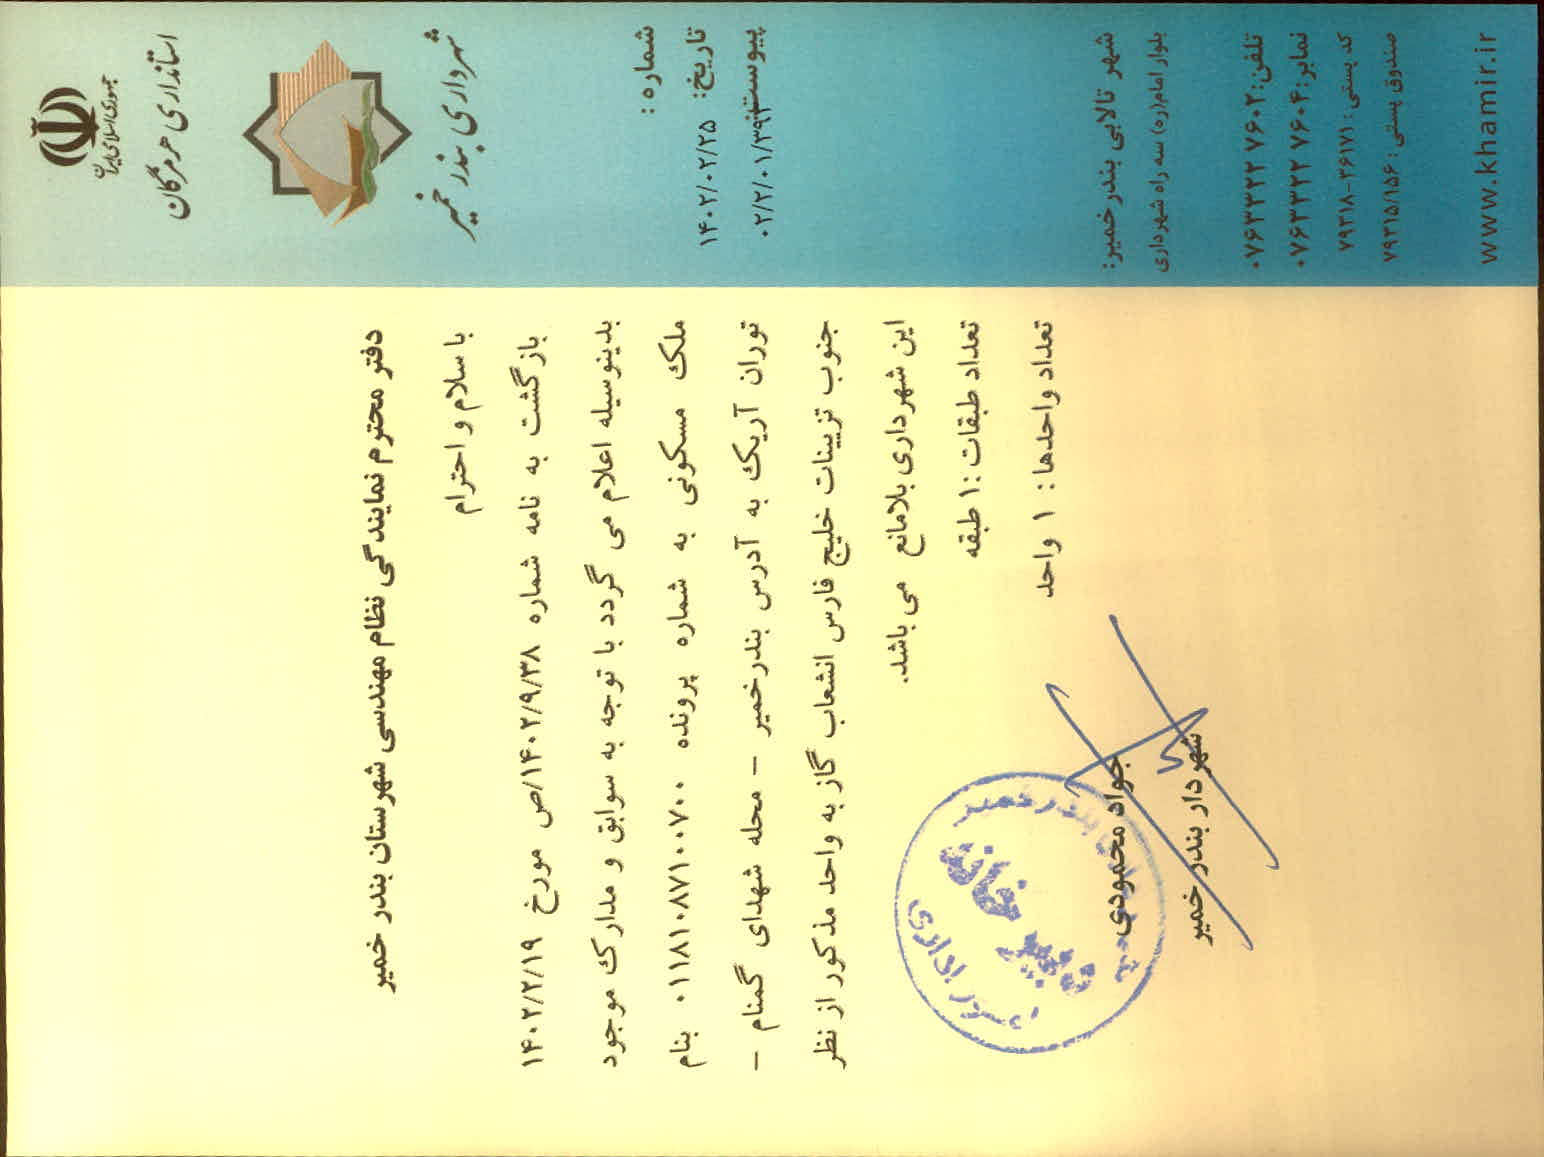 جمهوری اسلامی ایران
استانداری هرمزگان
شهرداری بندر خمیر
شماره :
تاریخ: ۱۴۰۲/۰۲/۲۵
پیوست:
۰۲/۲/۰۱/۳۹۳
شهر تالابی بندر خمیر:
بلوار امام(ره) سه راه شهرداری
تلفن: ۰۷۶۳۳۲۲ ۷۶۰۲
نمابر: ۰۷۶۳۳۲۲ ۷۶۰۴
کد پستی : ۳۶۱۷۱-۷۹۳۱۸
صندوق پستی : ۷۹۳۱۵/۱۵۶
www.khamir.ir
دفتر محترم نمایندگی نظام مهندسی شهرستان بندر خمیر
با سلام و احترام
بازگشت به نامه شماره ۱۴۰۲/۹/۳۸/ص مورخ ۱۴۰۲/۲/۱۹
بدینوسیله اعلام می گردد با توجه به سوابق و مدارک موجود
ملک مسکونی به شماره پرونده ۰۱۱۸۱۰۸۷۱۰۰۷۰۰ بنام
توران آریک به آدرس بندرخمیر – محله شهدای گمنام –
جنوب تزیینات خلیج فارس انشعاب گاز به واحد مذکور از نظر
این شهرداری بلامانع می باشد.
تعداد طبقات :۱ طبقه
تعداد واحدها : ۱ واحد
جواد محمودی
شهردار بندر خمیر
شهرداری بندر خمیر
دبیرخانه
امور اداری